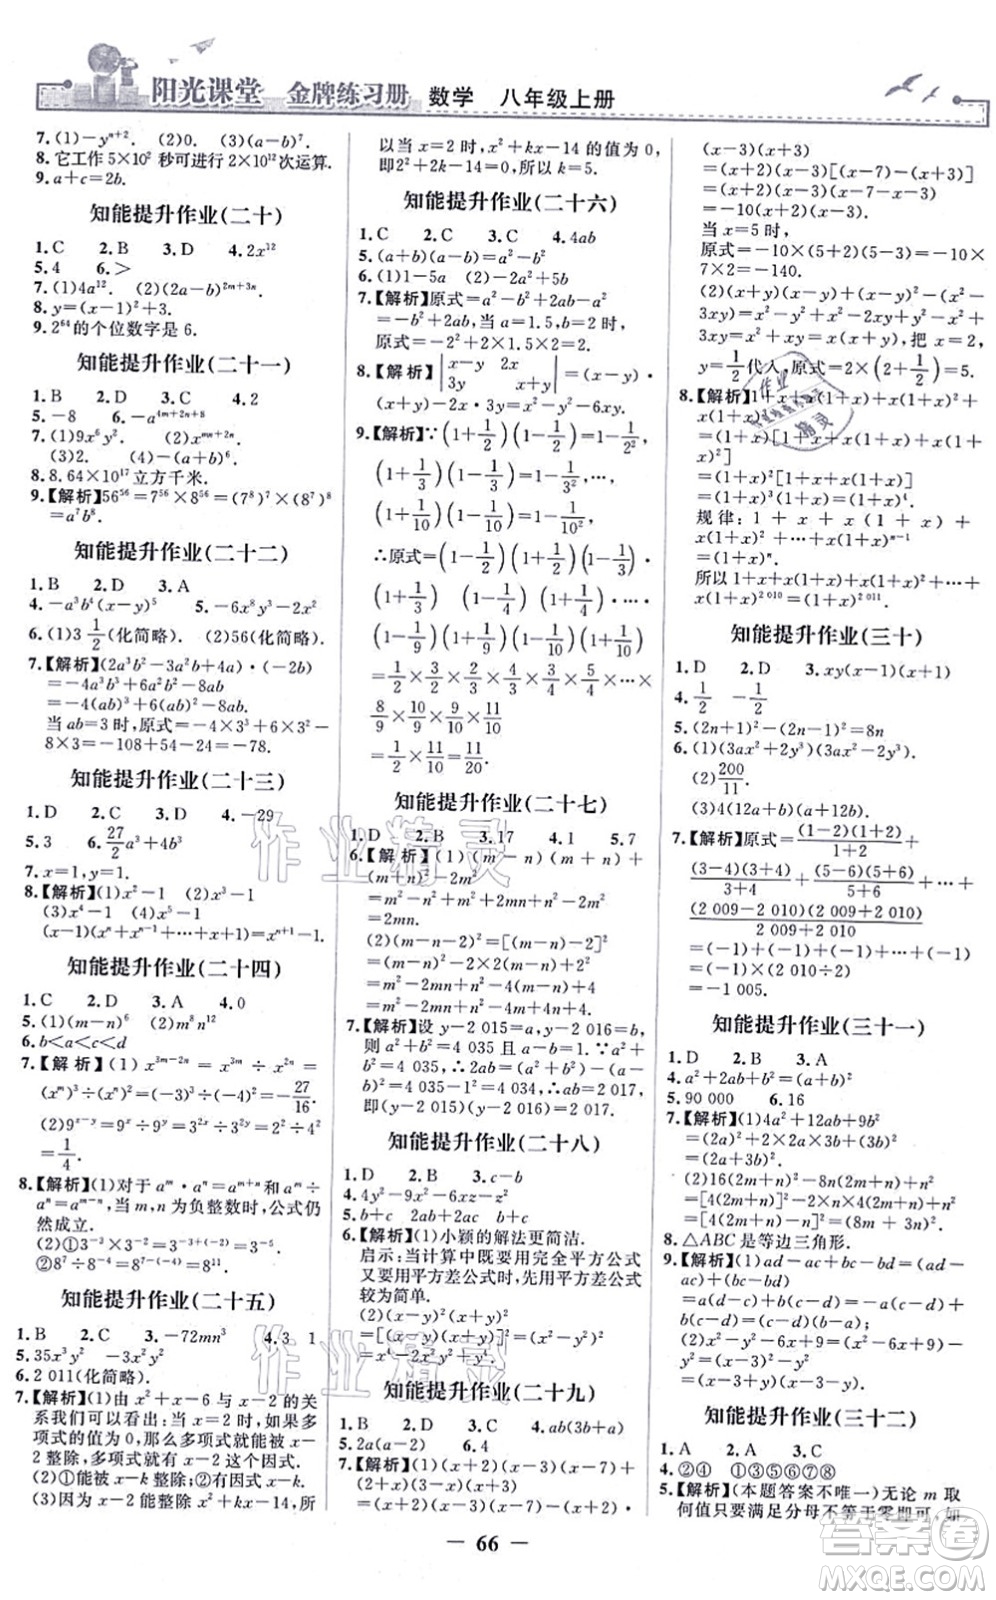 阳光课堂 金牌练习册 数学 八年级上册
7.(1)-yⁿ⁺². (2)0. (3)-a⁷.
8.它工作 5×10² 秒可进行 2×10¹² 次运算.
9.a+c=2b.
知能提升作业(二十)
1.C 2.B 3.D 4.2x¹²
5.4 6.>
7.(1)4a¹². (2)(2a-b)²ᵐ⁺³ⁿ.
8.y=(x-1)²+3.
9.2⁶⁴的个位数字是 6.
知能提升作业(二十一)
1.B 2.D 3.C 4.2
5.-8 6.-a⁴ᵐ⁺²ⁿ⁺⁸
7.(1)9x⁶y⁴. (2)xᵐⁿ⁺²ⁿ.
(3)2. (4)-(a+b)⁶.
8.8.64×10¹⁷立方千米.
9.【解析】56⁵⁶=7⁵⁶×8⁵⁶=(7⁸)⁷×(8⁷)⁸
=a⁷b⁸.
知能提升作业(二十二)
1.B 2.D 3.A
4.-a³b⁴(x-y)⁵ 5.-6x⁸y³-8x³y⁴
6.(1)3 1/2(化简略). (2)56(化简略).
7.【解析】(2a³b²-3a²b+4a)·(-2b)
=-4a³b³+6a²b²-8ab
=-4(ab)³+6(ab)²-8ab
当 ab=3 时,原式=-4×3³+6×3²-
8×3=-108+54-24=-78.
知能提升作业(二十三)
1.D 2.C 3.A 4.-29
5.3 6.27/2 a³+4b³
7.x=1,y=1.
8.【解析】(1)x²-1 (2)x³-1
(3)x⁴-1
(x-1)(xⁿ+xⁿ⁻¹+…+x+1)=xⁿ⁺¹-1.
知能提升作业(二十四)
1.C 2.D 3.A 4.0
5.(1)(m-n)⁶ (2)m⁸n¹²
6.b<a<d<c
7.【解析】(1)x³ᵐ⁻²ⁿ=x³ᵐ÷x²ⁿ
=(xᵐ)³÷(xⁿ)²=(-3)³÷(-4)²=-27/16.
(2)9ˣ⁻ʸ=9ˣ÷9ʸ=3²ˣ÷3²ʸ=(3ˣ)²÷(3ʸ)²
=1/4.
8.【解析】(1)对于 aᵐ·aⁿ=aᵐ⁺ⁿ,aᵐ÷
aⁿ=aᵐ⁻ⁿ,当 m,n 为负整数时,公式仍
然成立.
(2)①3⁻³÷3²=3⁻³⁻²=3⁻⁵.
②8⁷÷8⁻⁴=8⁷⁻⁽⁻⁴⁾=8¹¹.
知能提升作业(二十五)
1.B 2.B 3.-72mn³ 4.3 1
5.35x³y -3x²y
6.2 011(化简略).
7.【解析】(1)由 x²+x-6 与 x-2 的关
系我们可以看出:当 x=2 时,如果多
项式的值为 0,那么多项式就能被 x-
2 整除,多项式就有 x-2 这个因式.
(2)①能被 x-k 整除;②有因式 x-k.
(3)因为 x-2 能整除 x²+kx-14,所
以当 x=2 时,x²+kx-14 的值为 0,
即 2²+2k-14=0,所以 k=5.
知能提升作业(二十六)
1.C 2.C 3.C 4.4ab
5.(a+b)(a-b)=a²-b²
6.(1)1-5a (2)-2a²+5b
7.【解析】原式=a²-b²+2ab+b²-2a²
=-a²+2ab,当 a=1.5,b=2 时,
原式=-2¼+6=3¾.
8.【解析】|x-y 2x|
|3y x+y|=(x-y)
·(x+y)-2x·3y=x²-y²-6xy.
9.【解析】∵(1+1/2)(1-1/2)=1-1/2²,
(1+1/3)(1-1/3)=1-1/3²,…,
(1+1/10)(1-1/10)=1-1/10²,
∴原式=(1-1/2)(1+1/2)(1-1/3)·
(1+1/3)(1-1/4)(1+1/4)·…·
(1-1/9)(1+1/9)(1-1/10)(1+1/10)
=1/2×3/2×2/3×4/3×3/4×5/4×…×
8/9×10/9×9/10×11/10
=1/2×11/10=11/20.
知能提升作业(二十七)
1.D 2.B 3.17 4.1 5.7
6.【解析】(1)(m-n)(m+n)+
(m+n)²-2m²
=m²-n²+m²+2mn+n²-2m²
=2mn.
(2)(m-n-2)²=[(m-n)-2]²
=(m-n)²-2×2(m-n)+2²
=m²-2mn+n²-4(m-n)+4
=m²-2mn+n²-4m+4n+4.
7.【解析】设 y-2 015=a,y-2 016=b,
则 a²+b²=4 035 且 a-b=1.∵a²+
b²=4 035,∴2ab=(a²+b²)-(a-
b)²=4 035-1=4 034,∴ab=2 017,
即(y-2 015)(y-2 016)=2 017.
知能提升作业(二十八)
1.D 2.B 3.c-b
4.4x²-9y²-6xz-z²
5.b+c 2ab+2ac b+c
6.【解析】(1)小颖的解法更简洁.
启示:当计算中既要用完全平方公式
又要用平方差公式时,先用平方差公式
较为简单.
(2)(x-y)²(x+y)²
=[(x-y)(x+y)]²=(x²-y²)²
=x⁴-2x²y²+y⁴.
知能提升作业(二十九)
1.D 2.C 3.C 4.ab(3b+a)
5.2a(a-2) 6.4
7.【解析】(1)(x+2)(x-3)(x-7)+
(x+2)(3-x)(x+3)=(x+2)
(x-3)(x-7)-(x+2)
(x-3)(x+3)
=(x+2)(x-3)[(x-7)-(x+3)]
=(x+2)(x-3)(x-7-x-3)
=-10(x+2)(x-3).
当 x=5 时,
原式=-10×(5+2)(5-3)=-10×
7×2=-140.
(2)(x+y)(x-y)+x²+y²-(x²-
3xy)=x²-y²+x²+y²-x²+
3xy=x²+3xy=x(x+3y),把 x=2,
y=1/2代入,原式=2×(2+3/2)=5.
8.【解析】1+x+x(1+x)+
x(1+x)²+x(1+x)³
=(1+x)[1+x+x(1+x)+
x(1+x)²]
=(1+x)²[1+x+x(1+x)]
=(1+x)³(1+x)=(1+x)⁴.
规律:1+x+x(1+x)+
x(1+x)²+…+x(1+x)ⁿ⁻¹
=(1+x)ⁿ.
所以 1+x+x(1+x)+x(1+x)²+
…+x(1+x)²⁰¹⁰=(1+x)²⁰¹¹.
知能提升作业(三十)
1.D 2.D 3.xy(x-1)(x+1)
4.1/2 -1/2
5.(2n+1)²-(2n-1)²=8n
6.(1)(3ax²+2y³)(3ax²-2y³).
(2)200/11.
(3)4(2a+b)(a+12b).
7.【解析】原式=(1-2)(1+2)/(1+2)+
(3-4)(3+4)/(3+4)+(5-6)(5+6)/(5+6)+…+
(2 009-2 010)(2 009+2 010)/(2 009+2 010)
=(-1)+(-1)+(-1)+…+(-1)
=(-1)×(2 010÷2)
=-1 005.
知能提升作业(三十一)
1.D 2.B 3.A
4.a²+2ab+b²=(a+b)²
5.90 000 6.16
7.【解析】(1)4a²+12ab+9b²
=(2a)²+2×2a×3b+(3b)²
=(2a+3b)².
(2)16(2m+n)²-8n(2m+n)+n²
=[4(2m+n)]²-2×n×4(2m+n)+n²
=[4(2m+n)-n]²=(8m+3n)².
8.△ABC 是等边三角形.
9.【解析】(1)ac-ad+bc-bd
=(ac-ad)+(bc-bd)
=a(c-d)+b(c-d)=(a+b)(c-d).
(2)x²-6x-y²+9=x²-6x+9-
y²=(x²-6x+9)-y²=(x-3)²-y²
=(x-y-3)(x+y-3).
知能提升作业(三十二)
1.A 2.A 3.C
4.②④ ①③⑤⑥⑦⑧
5.【解析】(本题答案不唯一)无论 m 取
何值只要满足分母不等于零即可,如
作业精灵
作业精灵
答案卷
MXQE.COM
— 66 —